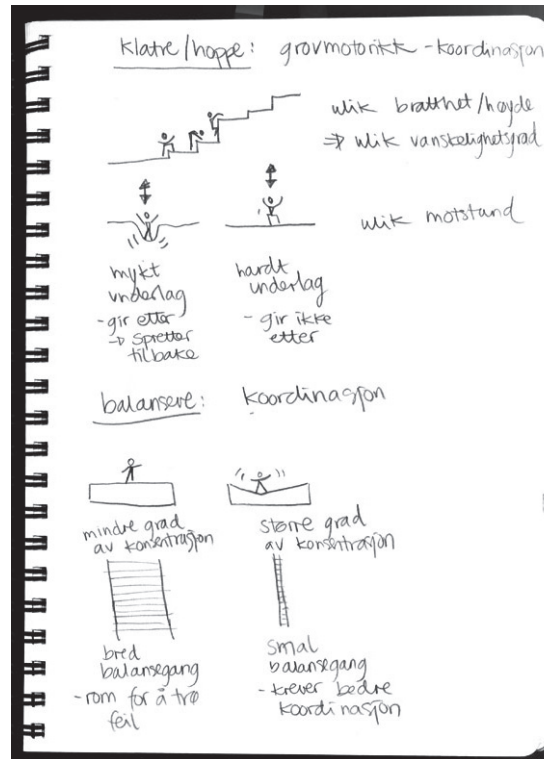 klatre/hoppe: grovmotorikk - koordinasjon
ulik bratthet/høyde
⇒ ulik vanskelighetsgrad
ulik motstand
mykt
underlag
- gir etter
→ spretter
tilbake
hardt
underlag
- gir ikke
etter
balansere: koordinasjon
mindre grad
av konsentrasjon
større grad
av konsentrasjon
bred
balansegang
- rom for å trø
feil
smal
balansegang
- krever bedre
koordinasjon